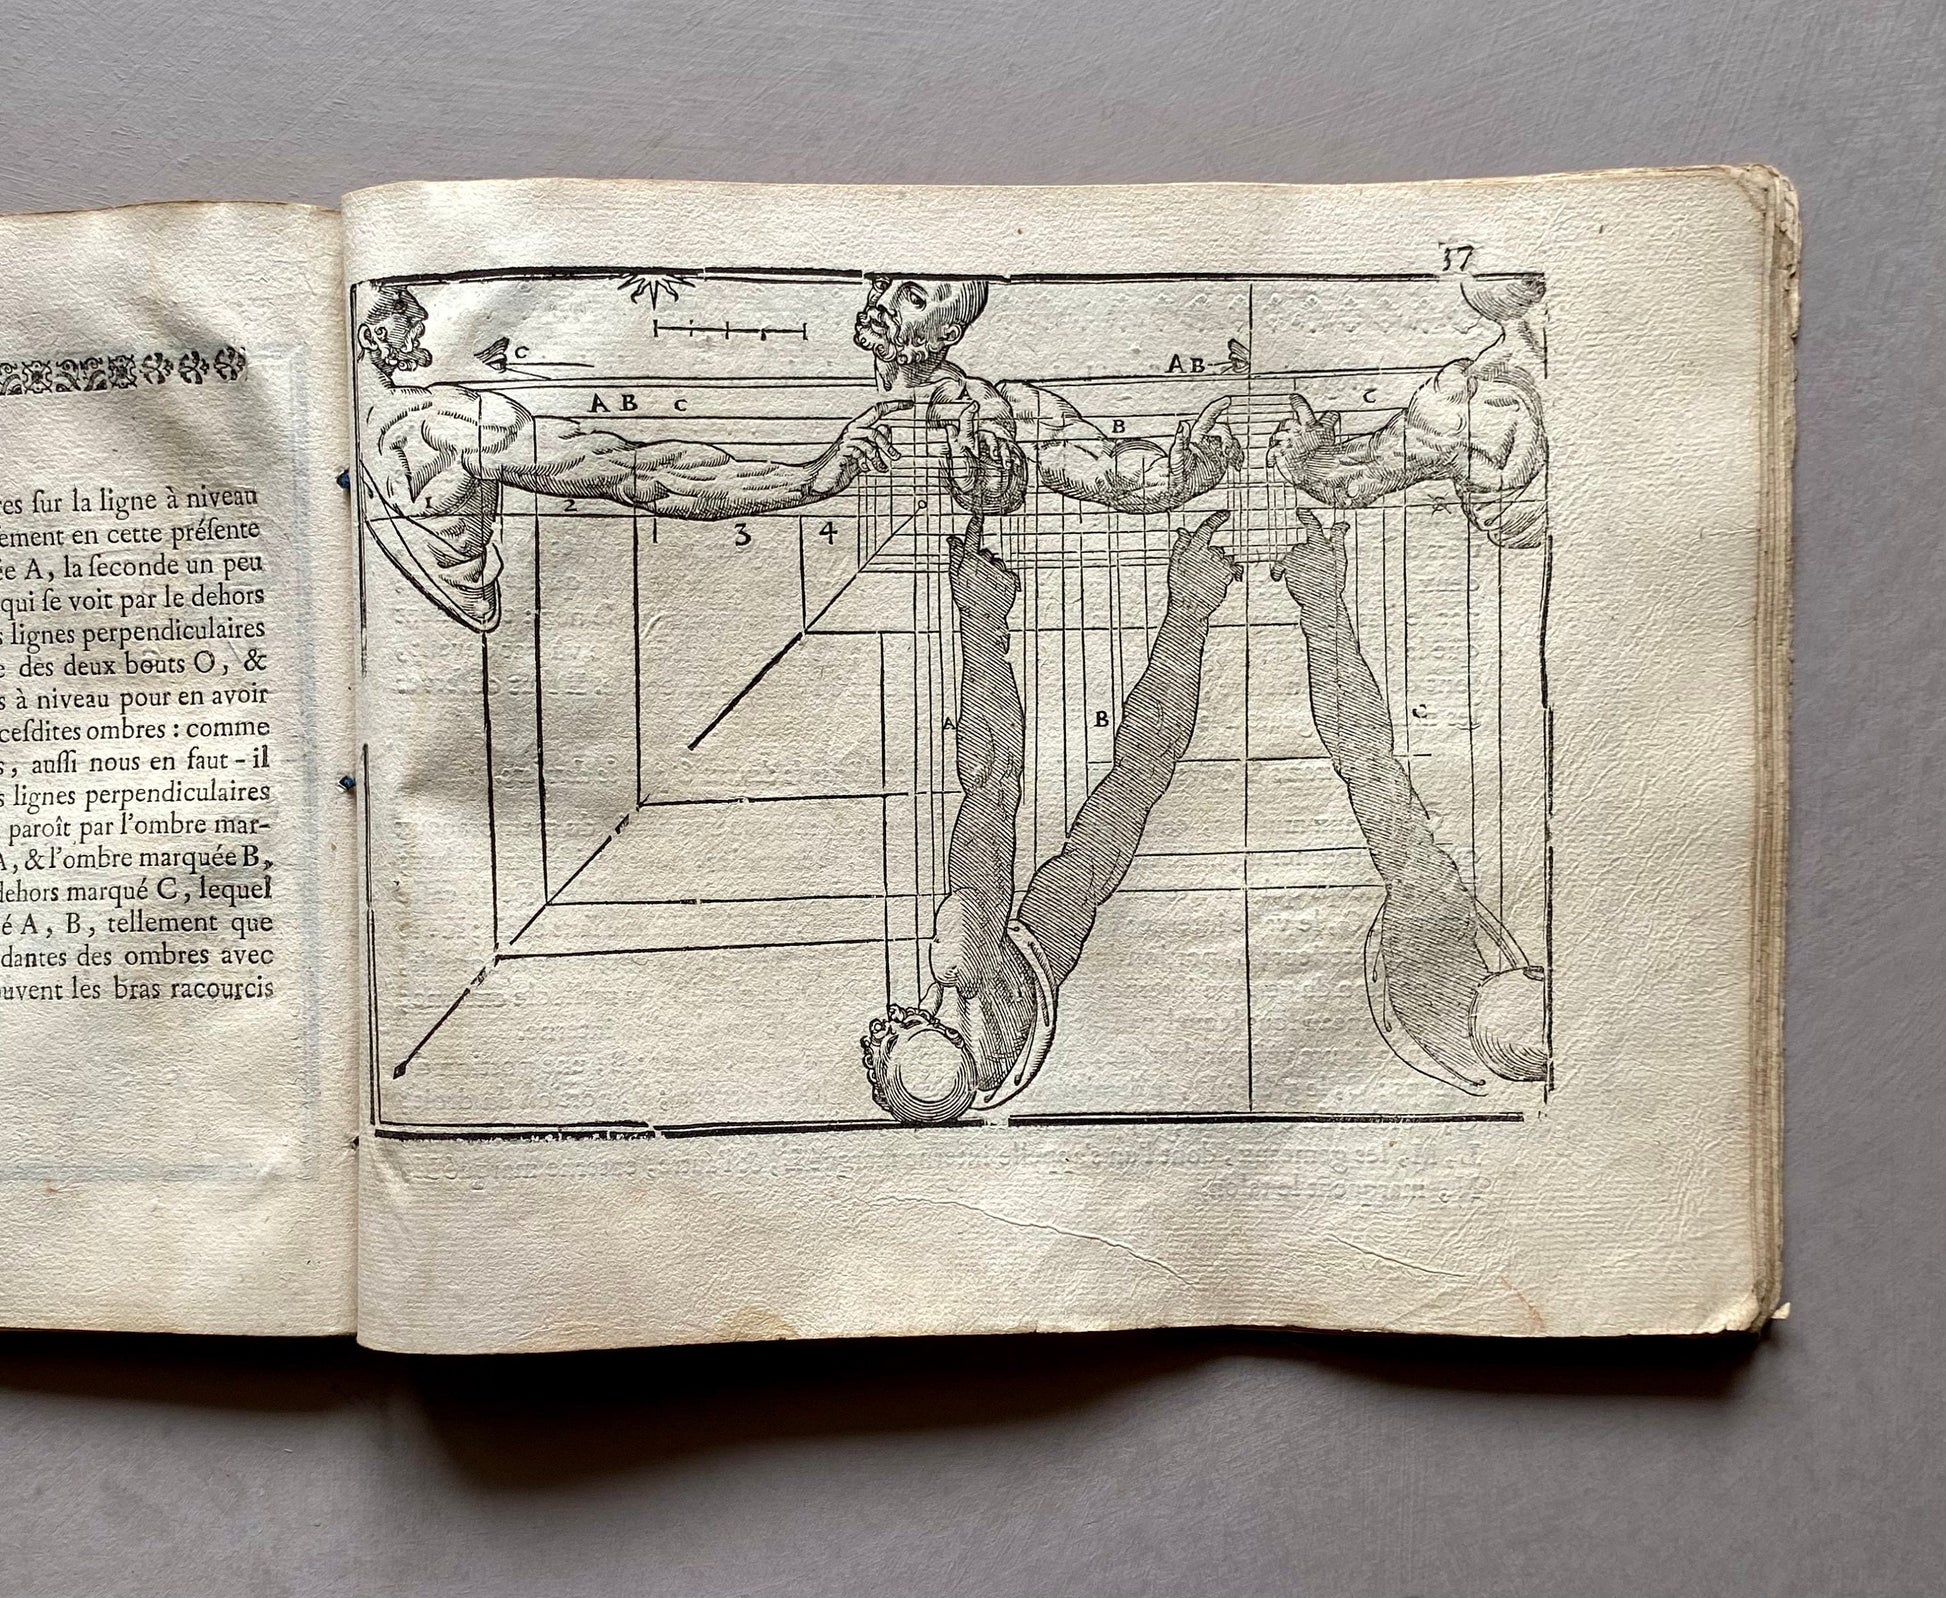 res ſur la ligne à niveau
ement en cette préſente
e A, la ſeconde un peu
qui ſe voit par le dehors
s lignes perpendiculaires
e des deux bouts O, &
s à niveau pour en avoir
ceſdites ombres : comme
s, auſſi nous en faut-il
s lignes perpendiculaires
paroît par l'ombre mar-
A, & l'ombre marquée B,
dehors marqué C, lequel
é A, B, tellement que
dantes des ombres avec
uvent les bras racourcis
37
C
A B
A B C
A
B
C
1
2
3
4
A
B
C